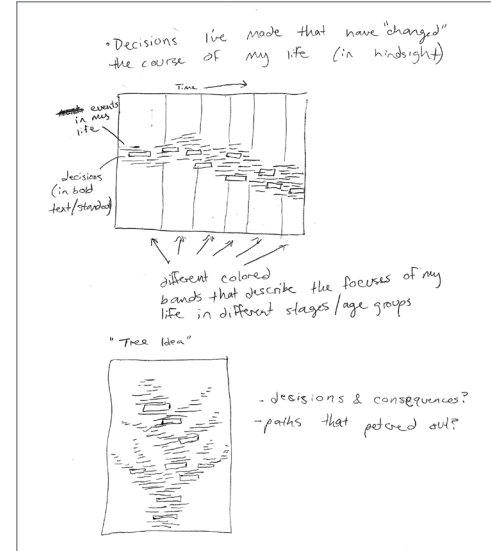 • Decisions I've made that have "changed"
the course of my life (in hindsight)
Time →
events
in my
life
decisions
(in bold
text/standout)
different colored
bands that describe the focuses of my
life in different stages/age groups
"Tree Idea"
- decisions & consequences?
- paths that petered out?